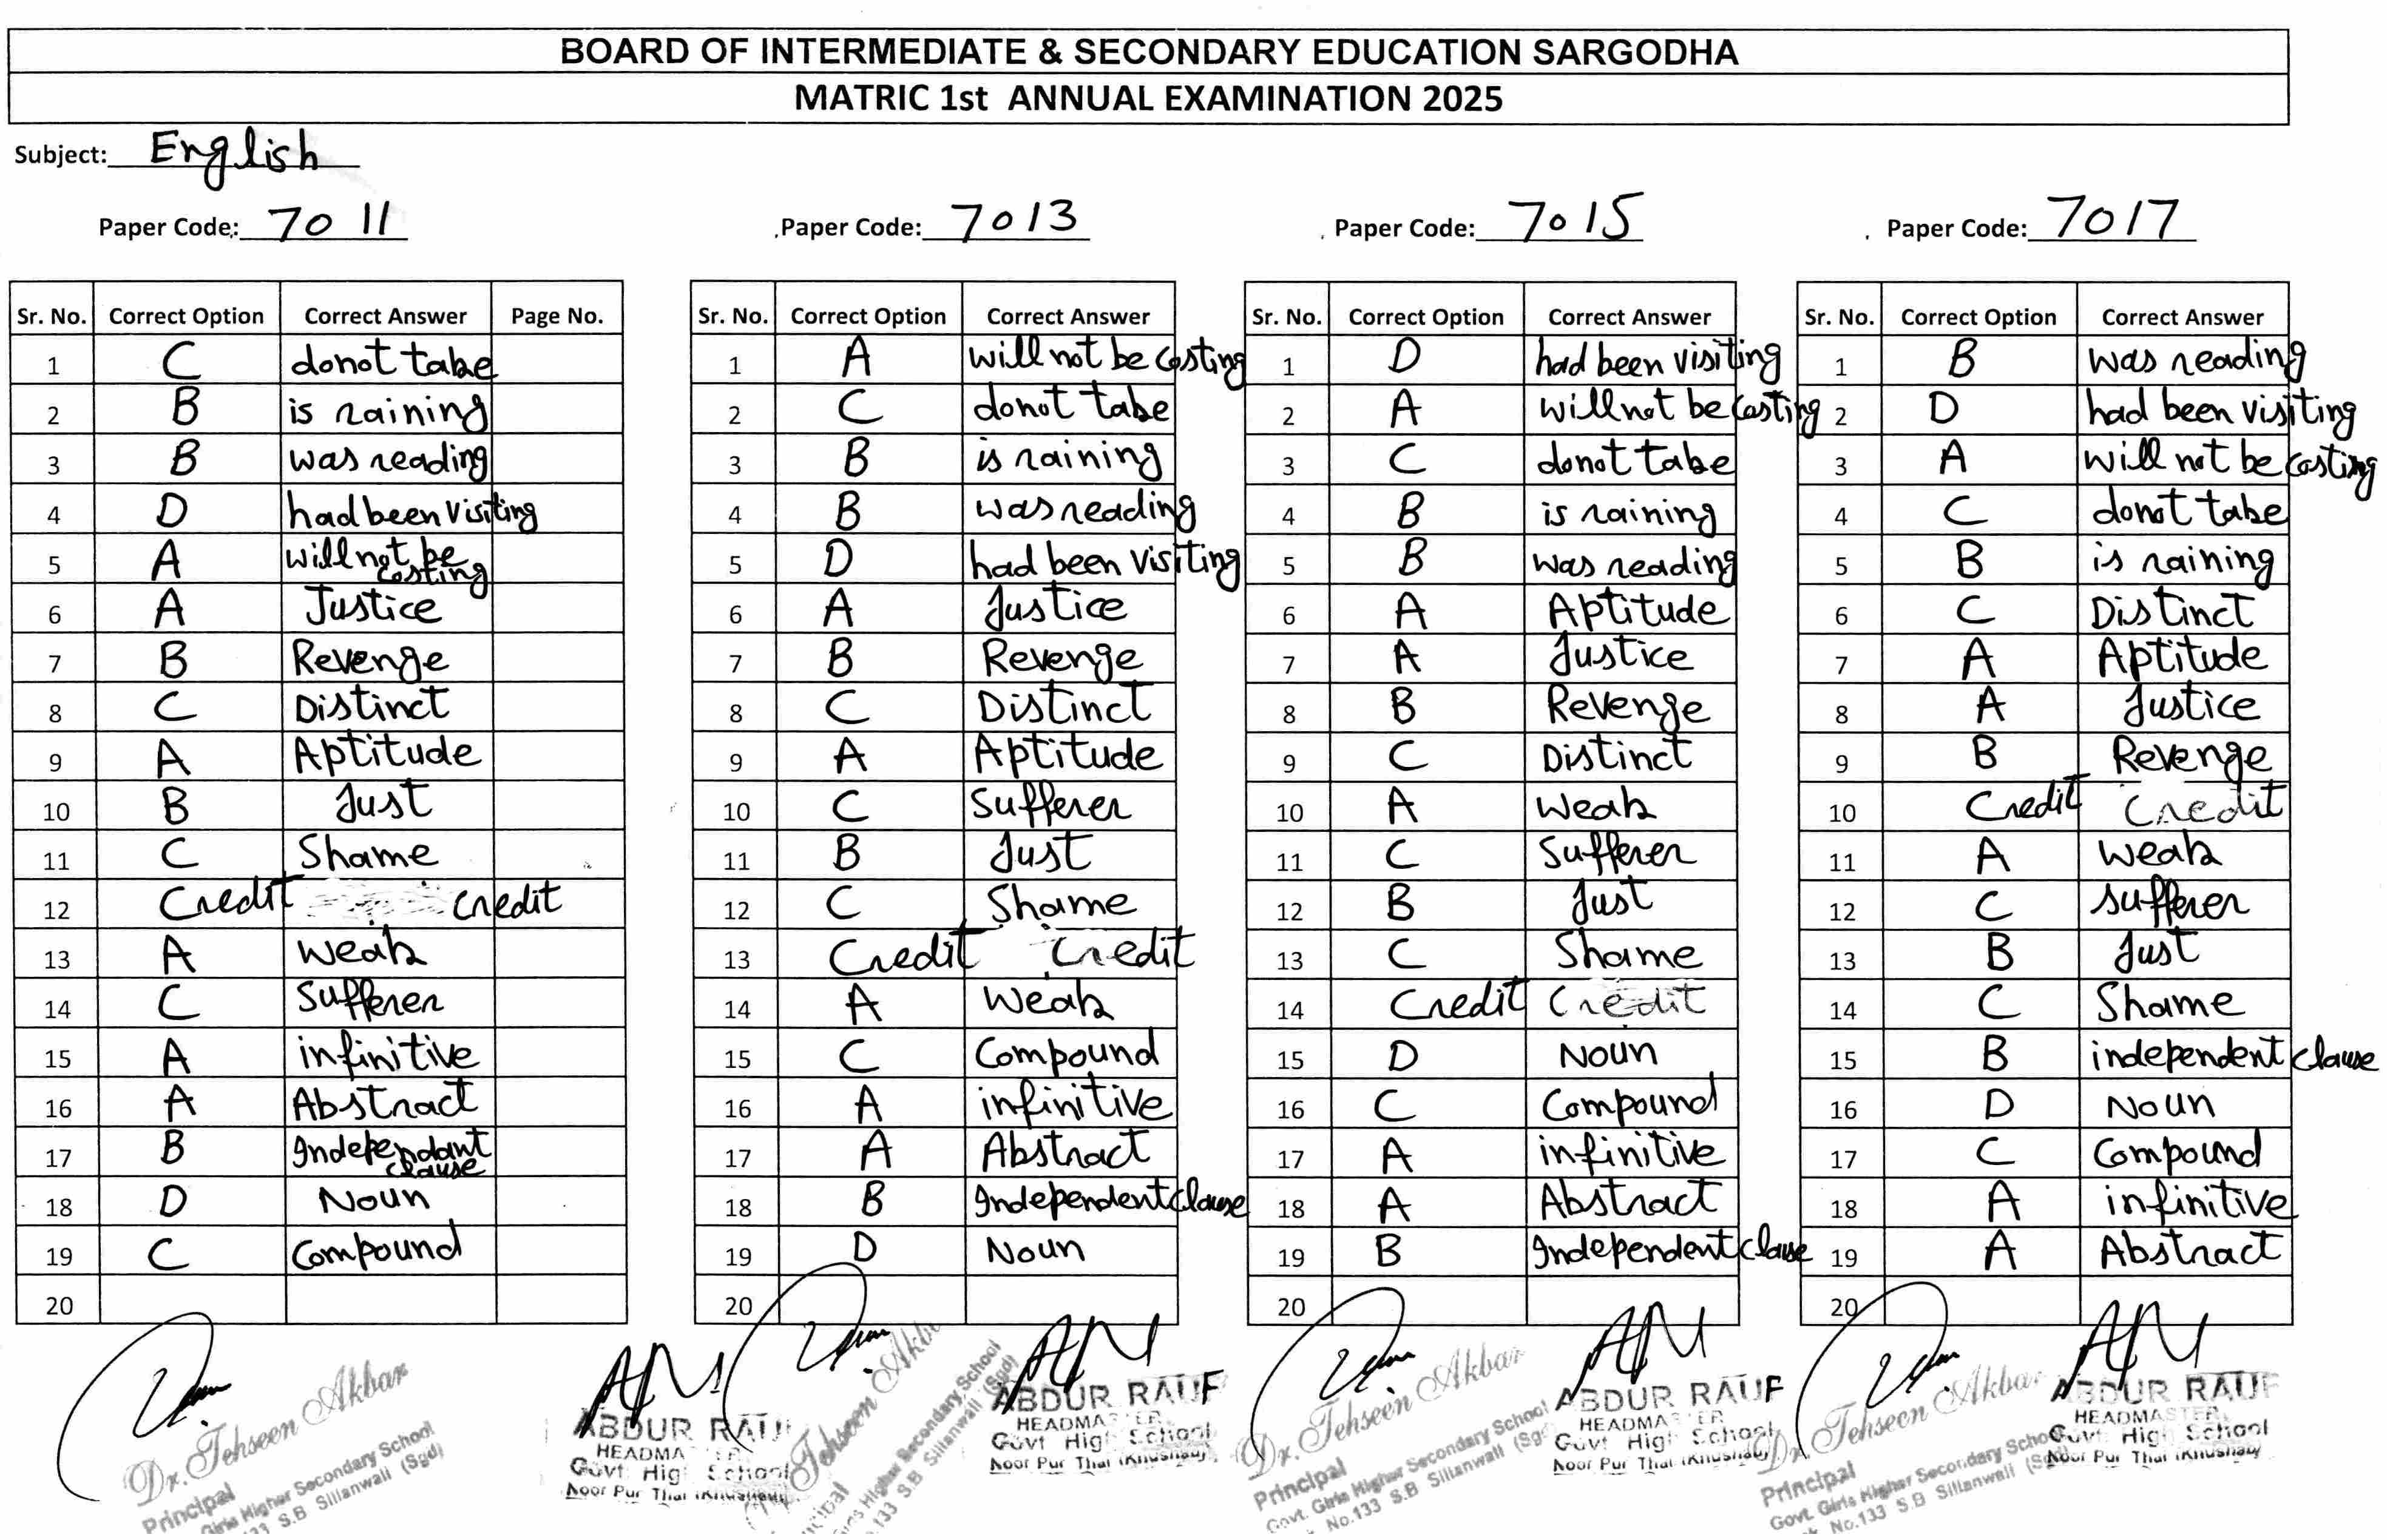 BOARD OF INTERMEDIATE & SECONDARY EDUCATION SARGODHA
MATRIC 1st ANNUAL EXAMINATION 2025
Subject: English
Paper Code: 7011
Sr. No. Correct Option Correct Answer Page No.
1 C donot take
2 B is raining
3 B was reading
4 D had been visiting
5 A will not be costing
6 A Justice
7 B Revenge
8 C Distinct
9 A Aptitude
10 B Just
11 C Shame
12 Credit credit
13 A Weak
14 C Sufferer
15 A infinitive
16 A Abstract
17 B Independant clause
18 D Noun
19 C Compound
20
Paper Code: 7013
Sr. No. Correct Option Correct Answer
1 A will not be costing
2 C donot take
3 B is raining
4 B was reading
5 D had been visiting
6 A Justice
7 B Revenge
8 C Distinct
9 A Aptitude
10 C Sufferer
11 B Just
12 C Shame
13 Credit Credit
14 A Weak
15 C Compound
16 A infinitive
17 A Abstract
18 B Independent clause
19 D Noun
20
Paper Code: 7015
Sr. No. Correct Option Correct Answer
1 D had been visiting
2 A will not be costing
3 C donot take
4 B is raining
5 B was reading
6 A Aptitude
7 A Justice
8 B Revenge
9 C Distinct
10 A Weak
11 C Sufferer
12 B Just
13 C Shame
14 Credit Credit
15 D Noun
16 C Compound
17 A infinitive
18 A Abstract
19 B Independent clause
20
Paper Code: 7017
Sr. No. Correct Option Correct Answer
1 B was reading
2 D had been visiting
3 A will not be costing
4 C donot take
5 B is raining
6 C Distinct
7 A Aptitude
8 A Justice
9 B Revenge
10 Credit Credit
11 A Weak
12 C sufferer
13 B Just
14 C Shame
15 B independent clause
16 D Noun
17 C Compound
18 A infinitive
19 A Abstract
20
Dr. Tehseen Akbar
Principal
Girls Higher Secondary School
S.B Sillanwali (Sgd)
ABDUR RAUF
HEADMASTER
Govt High School
Noor Pur Thal (Khushab)
Tehseen Akbar
Higher Secondary School
133 S.B Sillanwali (Sgd)
ABDUR RAUF
HEADMASTER
Govt High School
Noor Pur Thal (Khushab)
Dr. Tehseen Akbar
Principal
Govt. Girls Higher Secondary School
No.133 S.B Sillanwali (Sgd)
ABDUR RAUF
HEADMASTER
Govt High School
Noor Pur Thal (Khushab)
Dr. Tehseen Akbar
Principal
Govt. Girls Higher Secondary School
No.133 S.B Sillanwali (Sgd)
ABDUR RAUF
HEADMASTER
Govt High School
Noor Pur Thal (Khushab)